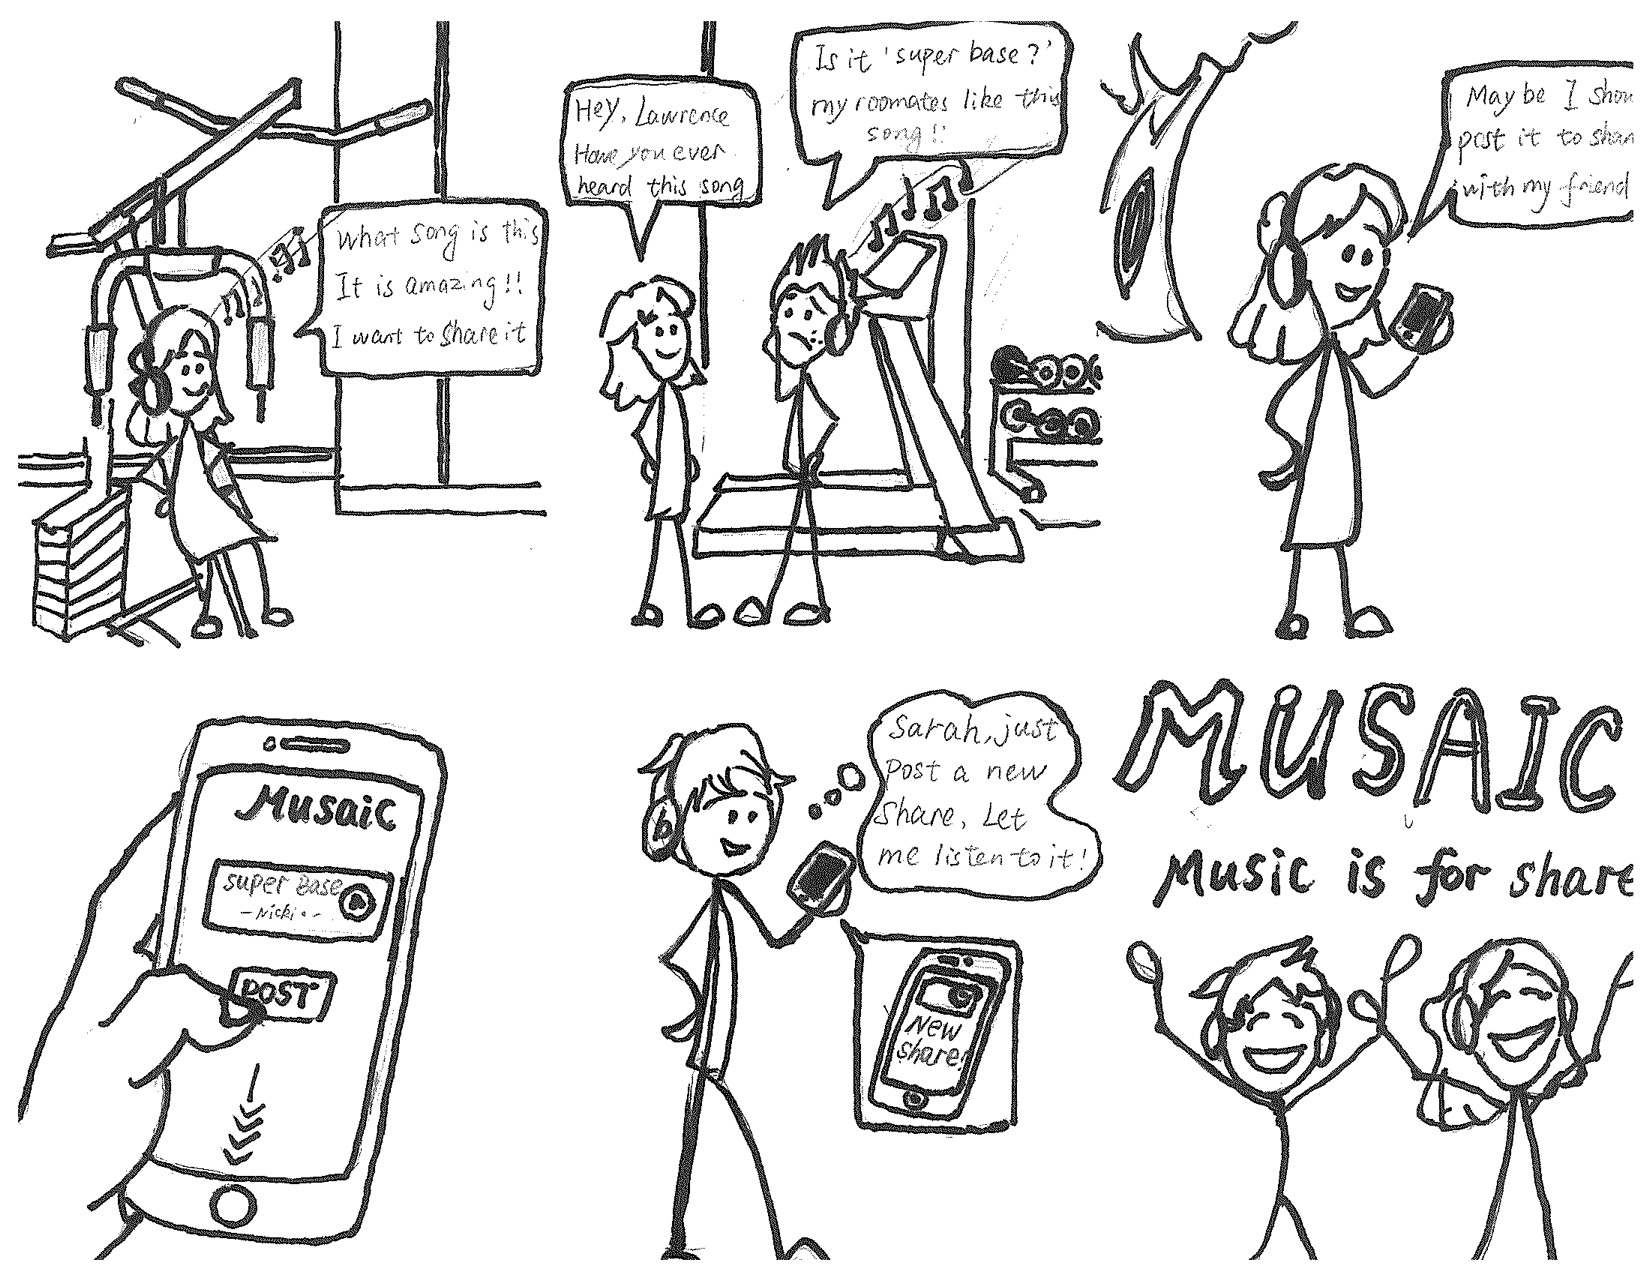 What song is this
It is amazing!!
I want to share it
Hey, Lawrence
Have you ever
heard this song
Is it 'super base?'
my roomates like this
song!!
Maybe I shou
post it to shar
with my friend
Musaic
super Base
- Nicki
POST
Sarah, just
Post a new
Share, Let
me listen to it!
b
New
share!
MUSAIC
Music is for share